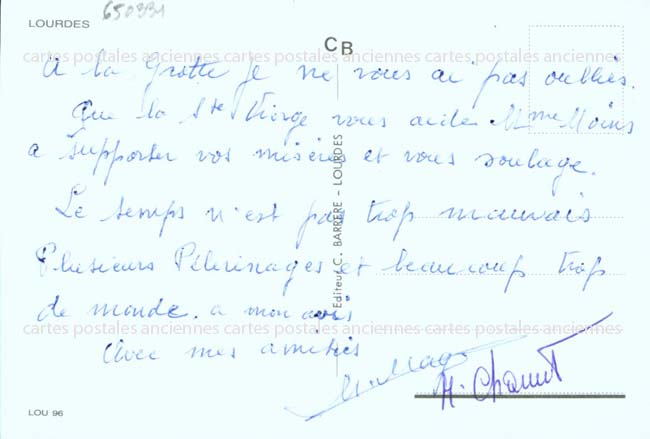 LOURDES
650331
CB
cartes postales anciennes cartes postales anciennes cartes postales anciennes
A la Grotte je ne vous ai pas oubliés.
Que la Ste Vierge vous aide Mme Moins
a supporter vos misères et vous soulage.
Le temps n'est pas trop mauvais
Plusieurs Pélerinages et beaucoup trop
de monde. a mon avis
cartes postales anciennes cartes postales anciennes cartes postales anciennes
Avec mes amitiés
H. Chanut
Editeur C. BARRERE - LOURDES
LOU 96